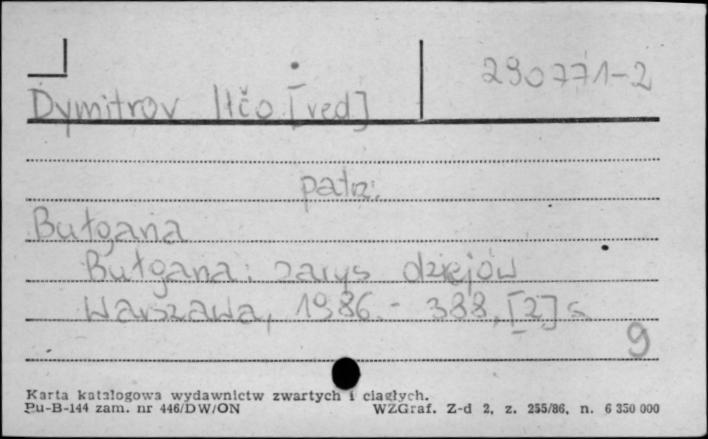 290771-2
Dymitrov Ilčo [red]
patrz:
Bułgaria
Bułgaria: zarys dziejów
Warszawa, 1986.- 388, [2] s
9
Karta katalogowa wydawnictw zwartych i ciągłych.
Pu-B-144 zam. nr 446/DW/ON WZGraf. Z-d 2, z. 255/86, n. 6 350 000